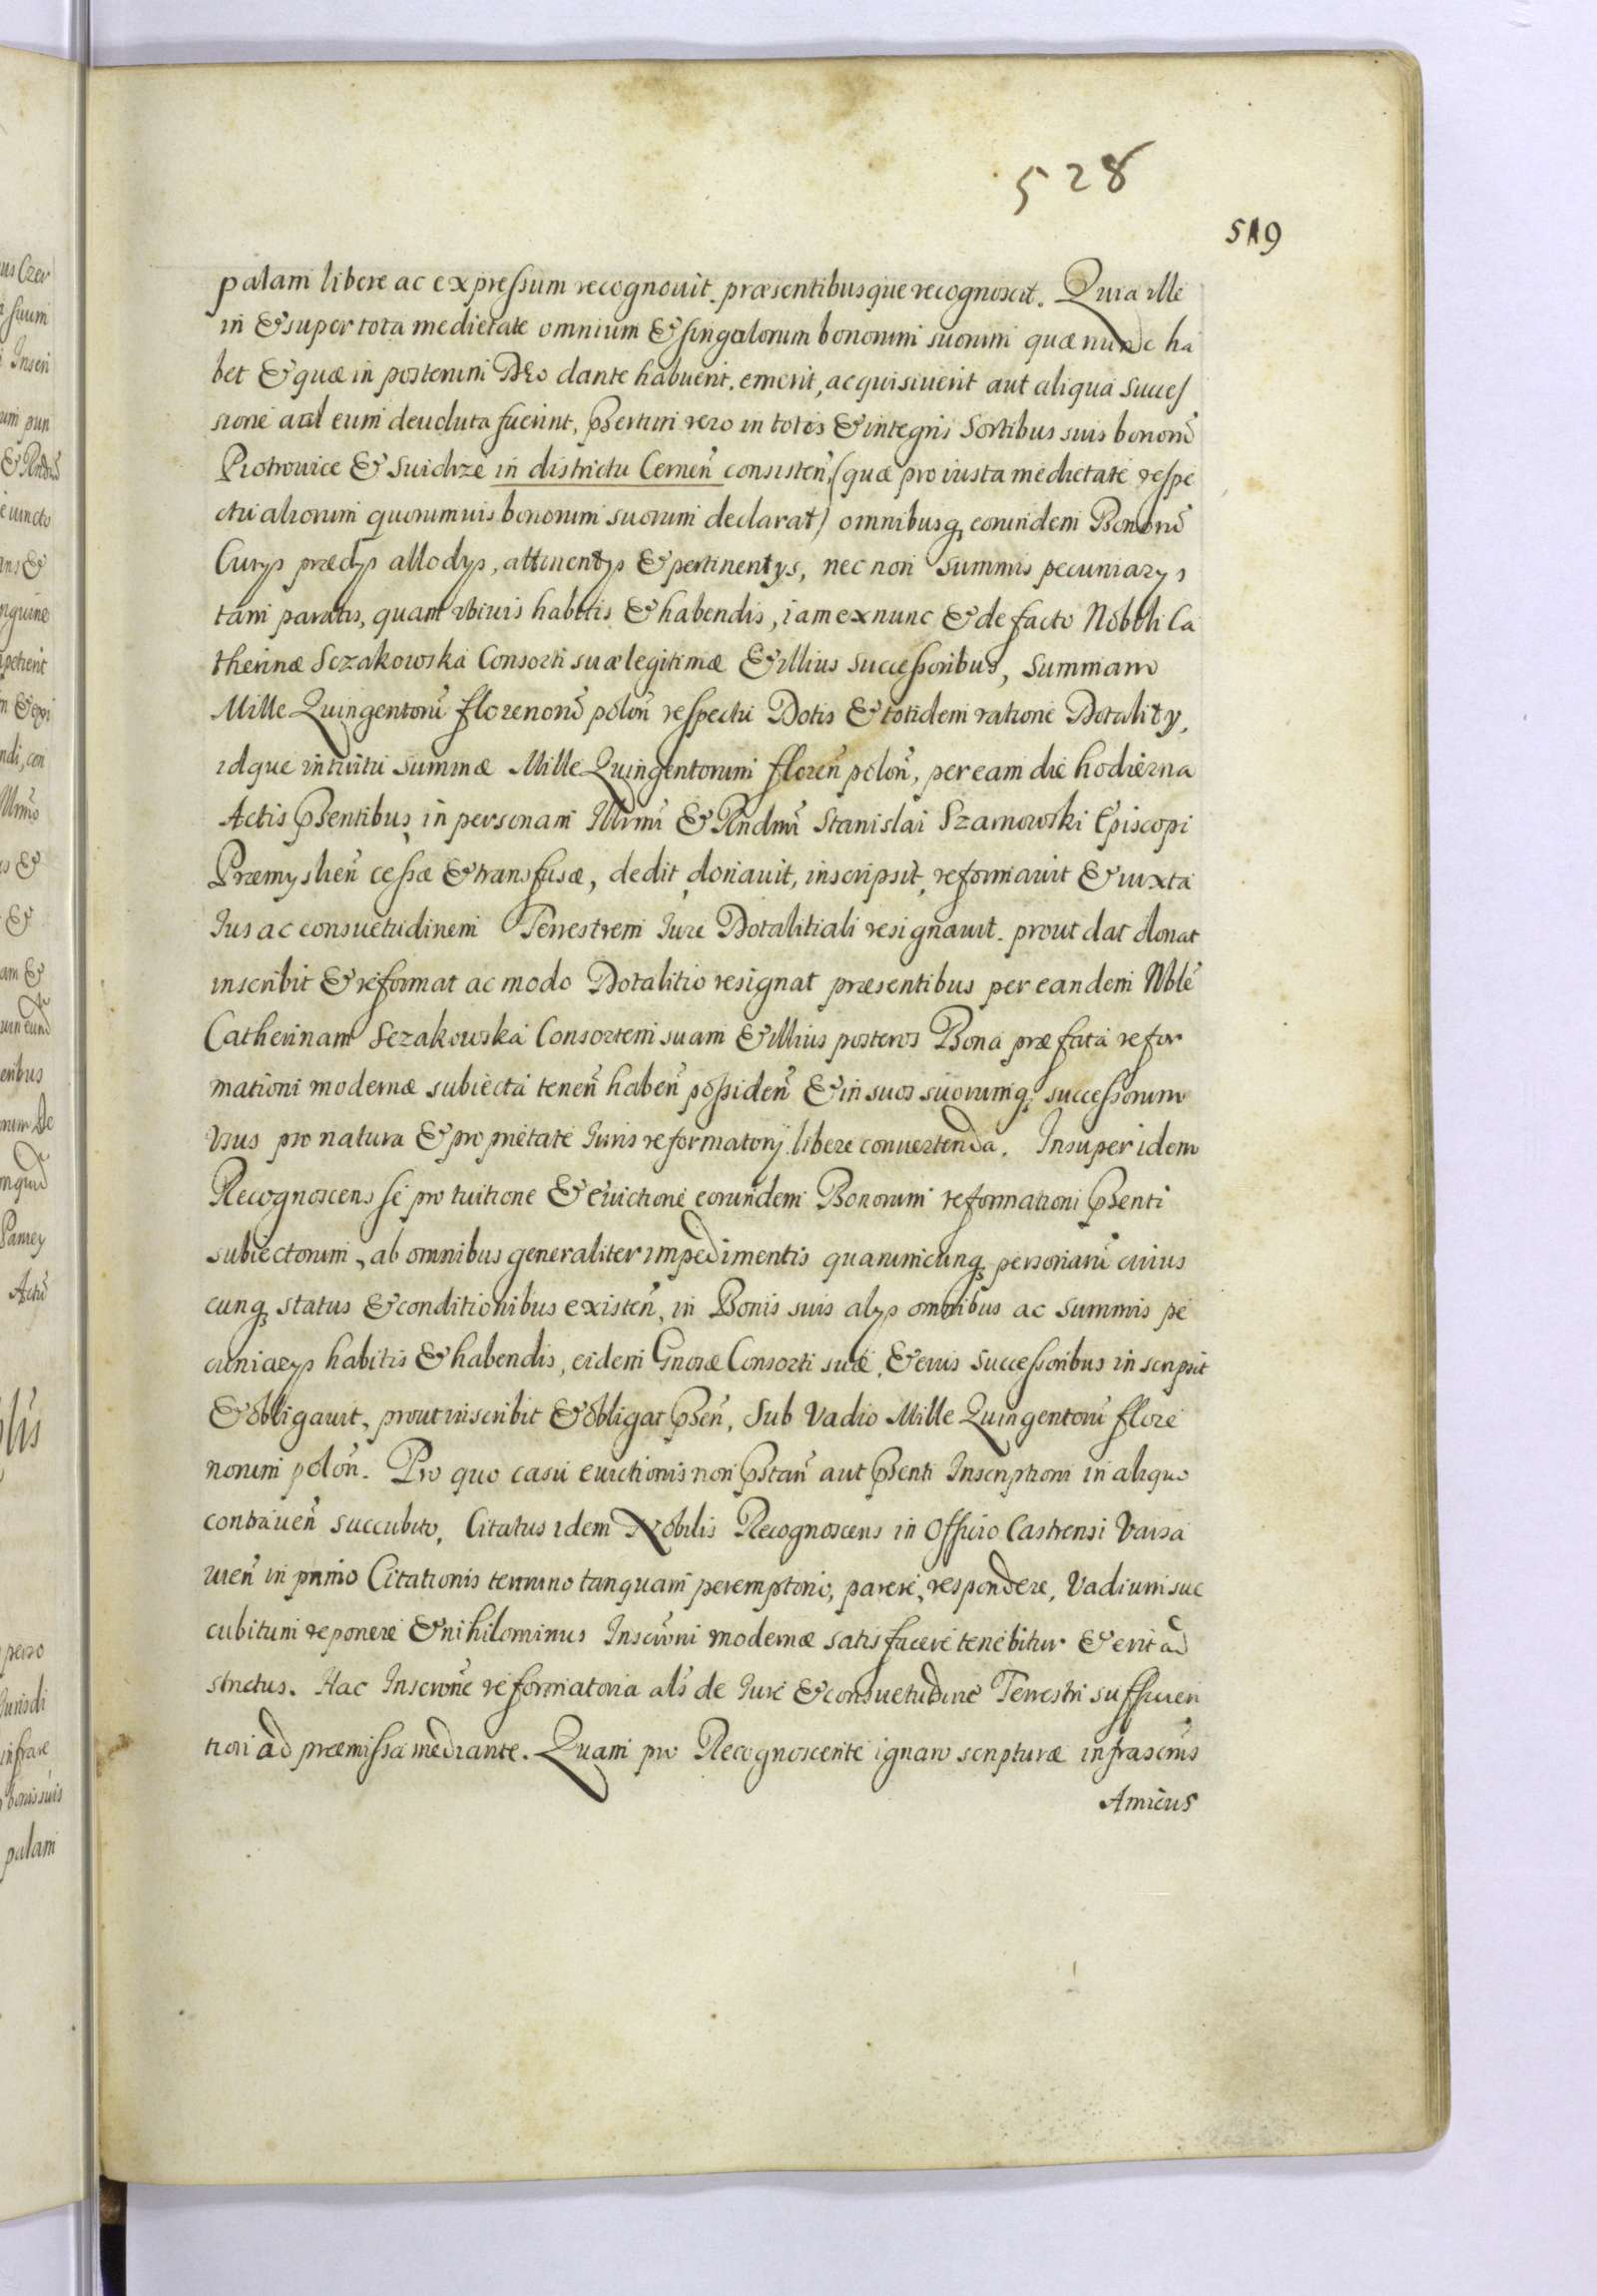 528
519
palam libere ac expressum recognouit. præsentibusque recognoscit. Quia ille
in & super tota medietate omnium & singulorum bonorum suorum quæ nunc ha
bet & quæ in posterum Deo dante habuerit, emerit, acquisiuerit aut aliqua succes
sione ad eum deuoluta fuerint, Psertim vero in totis & integris Sortibus suis bonorũ
Piotrowice & Swidrze in districtu Cernen̄ consisten̄, (quæ pro iusta medietate respe
ctu aliorum quorumuis bonorum suorum declarat) omnibusq, eorundem Bonorũ
Curys prædys allodys, attinentys & pertinentys, nec non summis pecuniarys
tam paratis, quam vbiuis habitis & habendis, iam ex nunc & de facto Nobili Ca
therinæ Sczakowska Consorti suæ legitimæ & illius successoribus, Summam
Mille Quingentorũ florenorũ polon̄ respectu Dotis & totidem ratione Dotality,
idque intuitu summæ Mille Quingentorum floren̄ polon̄, per eam die hodierna
Actis Psentibus in personam Illrmi & Rndmi Stanislai Szarnowski Episcopi
Præmyslien̄ cessæ & transfusæ, dedit donauit, inscripsit, reformauit & iuxta
Ius ac consuetudinem Terrestrem Iure Dotalitiali resignauit. prout dat donat
inscribit & reformat ac modo Dotalitio resignat præsentibus per eandem Nblẽ
Catherinam Sczakowska Consortem suam & illius posteros Bona præfata refor
mationi modernæ subiecta tenen̄ haben̄ possiden̄ & in suos suorumq, successorum
Vsus pro natura & proprietate Iuris reformatorij libere conuertenda. Insuper idem
Recognoscens se pro tuitione & euictione eorundem Bonorum reformationi Psenti
subiectorum, ab omnibus generaliter impedimentis quarumcunq, personarũ cuius
cunq, status & conditionibus existen̄, in Bonis suis alys omnibus ac summis pe
cuniarys habitis & habendis, eidem Gnosæ Consorti suæ, & eius successoribus inscripsit
& obligauit, prout inscribit & obligat Psen̄, Sub Vadio Mille Quingentorũ flore
norum polon̄. Pro quo casu euictionis non Pstan̄ aut Psenti Inscriptioni in aliquo
contrauen̄ succubito, Citatus idem Nobilis Recognoscens in Officio Castrensi Varsa
uien̄ in primo Citationis termino tanquam peremptorio, parere, respondere, Vadium suc
cubitum reponere & nihilominus Inscrõni modernæ satisfacere tenebitur & erit ad
strictus. Hac Inscrõne reformatoria als de Iure & consuetudine Terrestri sufficien
tiori ad præmissa mediante. Quam pro Recognoscente ignaro scripturæ infrascrius
Amicus